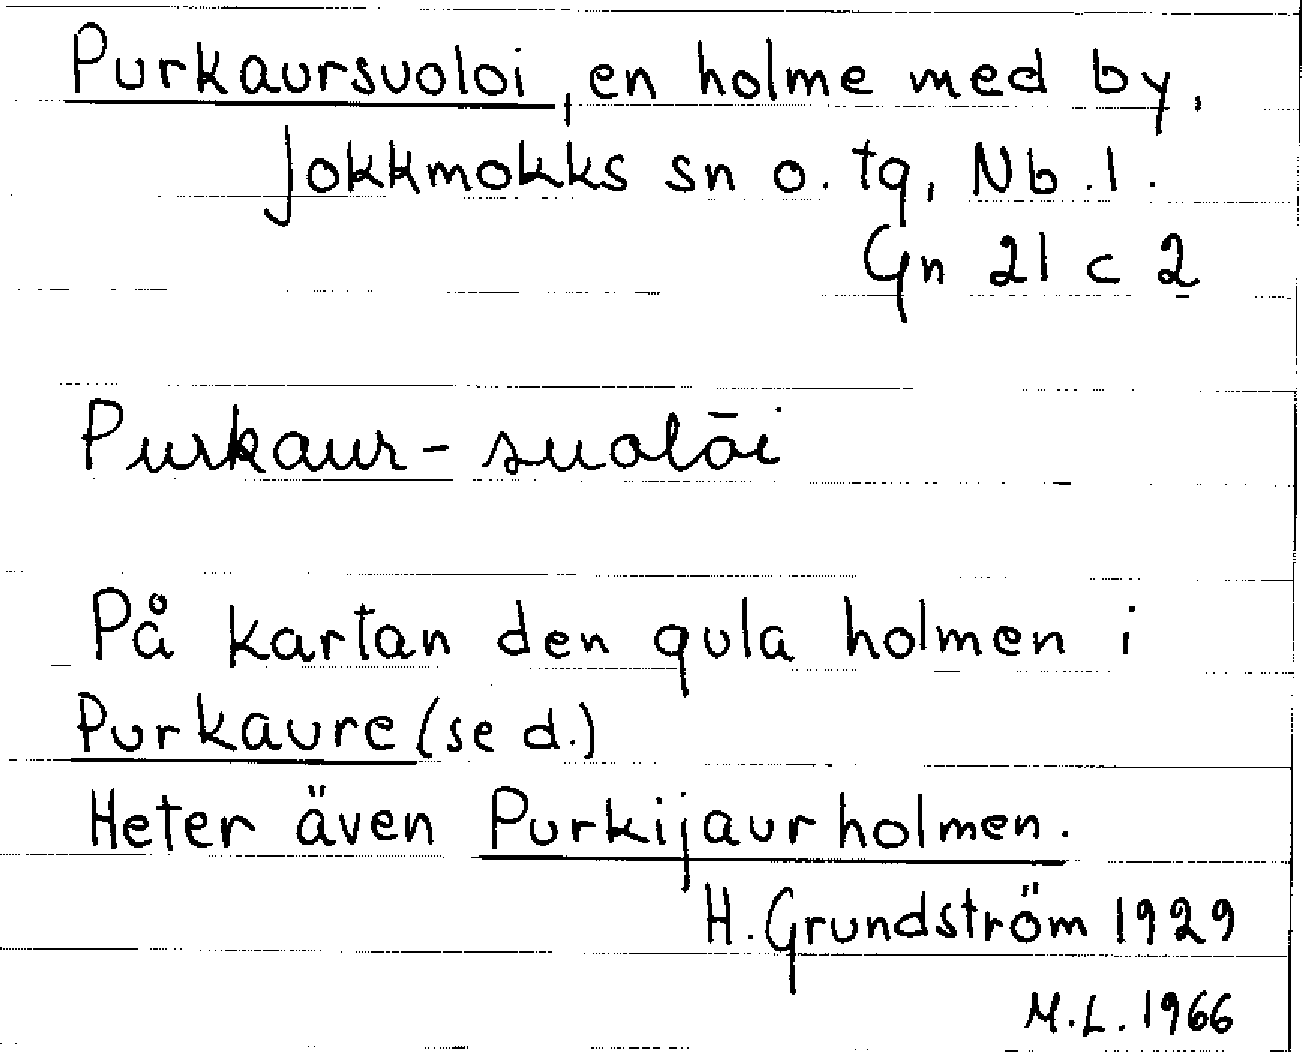 Purkaursuoloi, en holme med by,
Jokkmokks sn o. tg, Nb. l.
Gn 21 c 2
Purkaur-suolōi
På kartan den gula holmen i
Purkaure (se d.)
Heter även Purkijaurholmen.
H. Grundström 1929
M.L. 1966